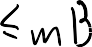 ≤mB